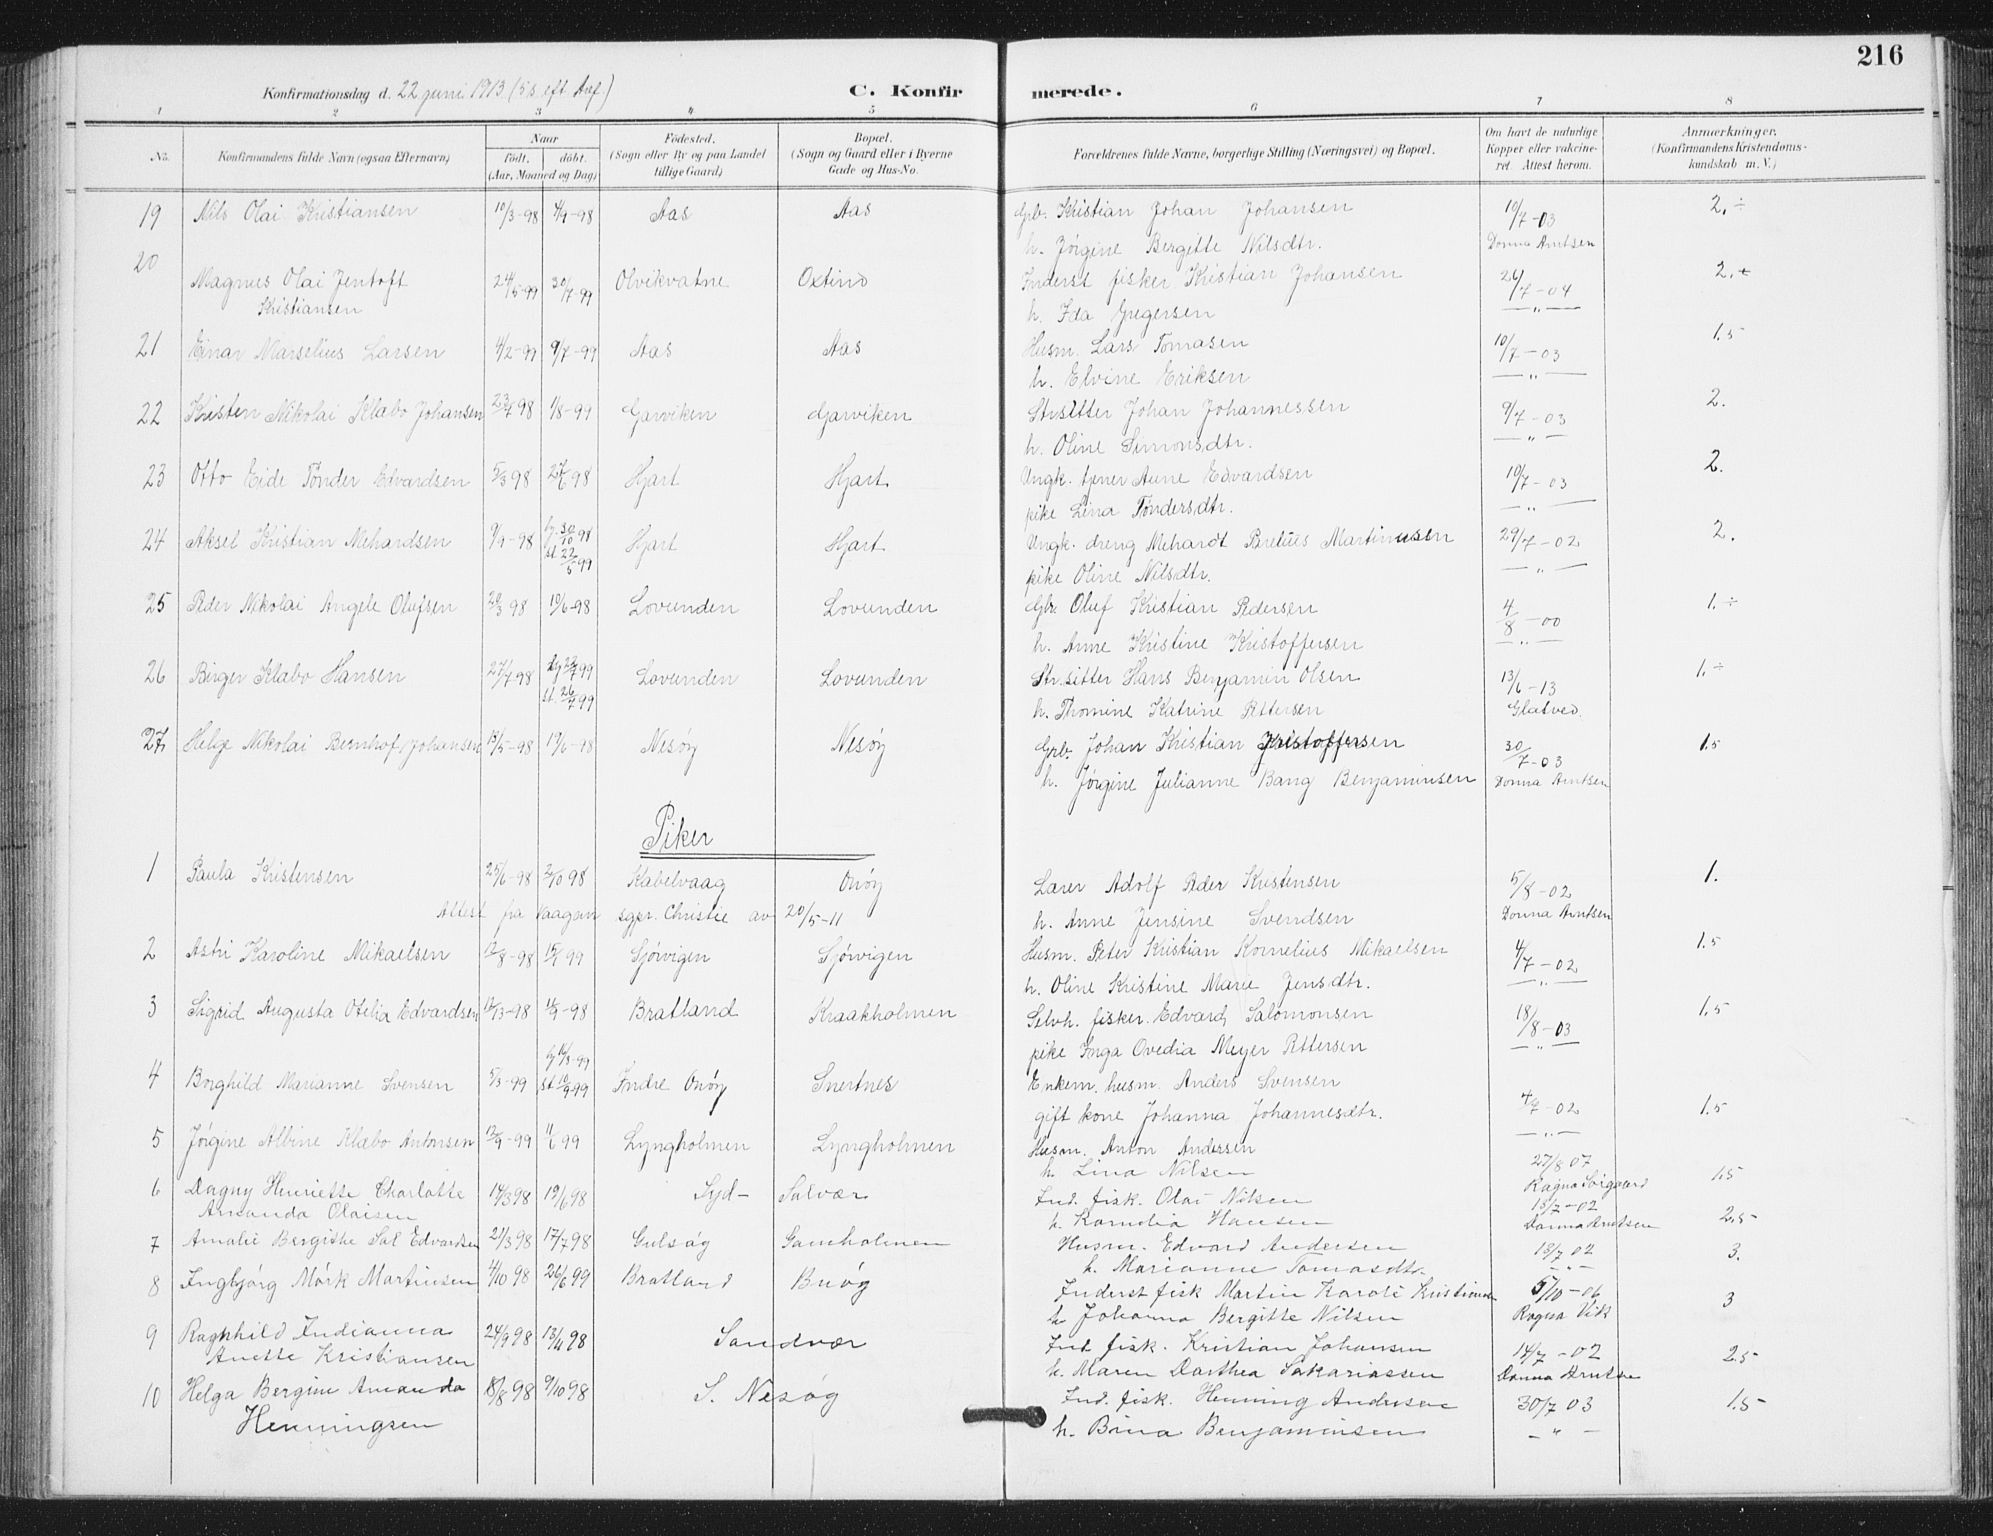 216
Konfirmationsdag d. 22 juni 1913 (5 s. eft. tref.) C. Konfirmerede.
1 2 3 4 5 6 7 8
No. Konfirmandens fulde Navn (ogsaa Efternavn) Naar født. døbt. (Aar, Maaned og Dag) Fødested. (Sogn eller By og paa Landet tillige Gaard) Bopæl. (Sogn og Gaard eller i Byerne Gade og Hus-No. Forældrenes fulde Navne, borgerlige Stilling (Næringsvei) og Bopæl. Om havt de naturlige Kopper eller vakcineret. Attest herom. Anmærkninger. (Konfirmandens Kristendomskundskab m. V.)
19 Nils Olai Kristiansen 10/3-98 4/9-98 Aas Aas Grb. Kristian Johan Johansen 10/7-03 2. ÷
h. Jørgine Bergitte Nilsdtr. Donna Arntsen
20 Magnus Olai Jentoft 24/5-99 30/7-99 Olvikvatne Oxtind Inderst fisker Kristian Johansen 26/7-04 2.+
Kristiansen h. Ida Gregersen — " —
21 Einar Marselius Larsen 4/2-99 9/7-99 Aas Aas Husm. Lars Tomasen 10/7-03 1.5
h. Elvine Eriksen — " —
22 Kristen Nikolai Klæbo Johansen 23/7 98 1/8-99 Garviken Garviken Strsitter Johan Johannessen 9/7-03 2.
h. Oline Simonsdtr. — " —
23 Otto Eide Tønder Edvardsen 5/3 98 27/6 98 Hjart Hjart Ungk. tjener Aune Edvardsen 10/7-03 2.
pike Lina Tøndersdtr. — " —
24 Aksel Kristian Mehardsen 9/9-98 hj. 30/10 98 Hjart Hjart Ungk. dreng Mehardt Parelius Martinusen 29/7-02 2.
st. 22/5 99 pike Oline Nilsdtr. — " —
25 Peder Nikolai Angele Olufsen 20/3 98 19/6-98 Lovunden Lovunden Gbr. Oluf Kristian Pedersen 4/8-00 1. ÷
h. Anne Kristine Kristoffersen — " —
26 Birger Klæbo Hansen 27/7 98 hj 23/7 99 Lovunden Lovunden Str.sitter Hans Benjamin Olsen 13/6-13 1. ÷
st. 26/7 99 h. Thomine Katrine Pettersen Glatved
27. Helge Nikolai Bernhof Johansen 13/5-98 19/6-98 Nesøy Nesøy Grb. Johan Kristian Kristoffersen 30/7-03 1.5
h. Jørgine Julianne Bang Benjaminsen Donna Arntsen
Piker
1 Paula Kristensen 25/6-98 2/10 98 Kabelvaag Onøy Lærer Adolf Peder Kristensen 5/8-02 1.
Attest fra Vaagan sgpr. Christie av 20/5-11 h. Anne Jensine Svendsen Donna Arntsen
2 Astri Karoline Mikaelsen 12/8-98 15/ 99 Sjørvigen Sjørvigen Husm. Peter Kristian Kornelius Mikaelsen 4/7-02 1.5
h. Oline Kristine Marie Jensdtr. — " —
3 Sigrid Augusta Otilia Edvardsen -98 /9-98 Bratland Kraakholmen Selvh. fisker. Edvard Salomonsen 18/8-03 1.5
pike Inga Ovedia Meyer Pettersen — " —
4 Borghild Marianne Svensen 5/3-99 hj 16/3-99 Indre Onøy Snertnes Enkem. husm. Anders Svensen
st. 10/9-99 gift kone Johanna Johannesdtr. 4/7-02 1.5
— " —
5 Jørgine Albine Klæbo Antonsen -99 11/6 99 Lyngholmen Lyngholmen Husm. Anton Andersen 27/8 07
h. Lina Nilsen Ragna Sørgaard 1.5
6 Dagny Henriette Charlotte 14/3 98 19/6 98 Syd-Solvær Ind. fisk. Olai Nilsen 13/7-02
Amanda Olaisen h. Kornelia Hansen Donna Arntsen 2.5
7 Amalie Bergithe Sal Edvardsen 21/3 98 17/7 98 Gulsøy Gamholmen Husm. Edvard Andersen 13/7 02 3.
h. Marianne Tomasdtr. — " —
8 Ingbjørg Mørk Martinsen 4/10 98 26/6 99 Bratland Buøy Inderst fisk Martin Karoli Kristiansen 5/10-06 3
h. Johanna Bergitte Nilsen Ragna Vik
9 Ragnhild Indianna 24/9 98 13/11 98 Sandvær Ind. fisk. Kristian Johansen 14/7-02 2.5
Anette Kristiansen h. Maren Dorthea Sakariassen Donna Arntsen
10 Helga Bergine Amanda 18/8 98 9/10 98 S. Nesøy Ind. fisk. Henning Andersen 30/7 03 1.5
Henningsen h. Bina Benjaminsen — " —